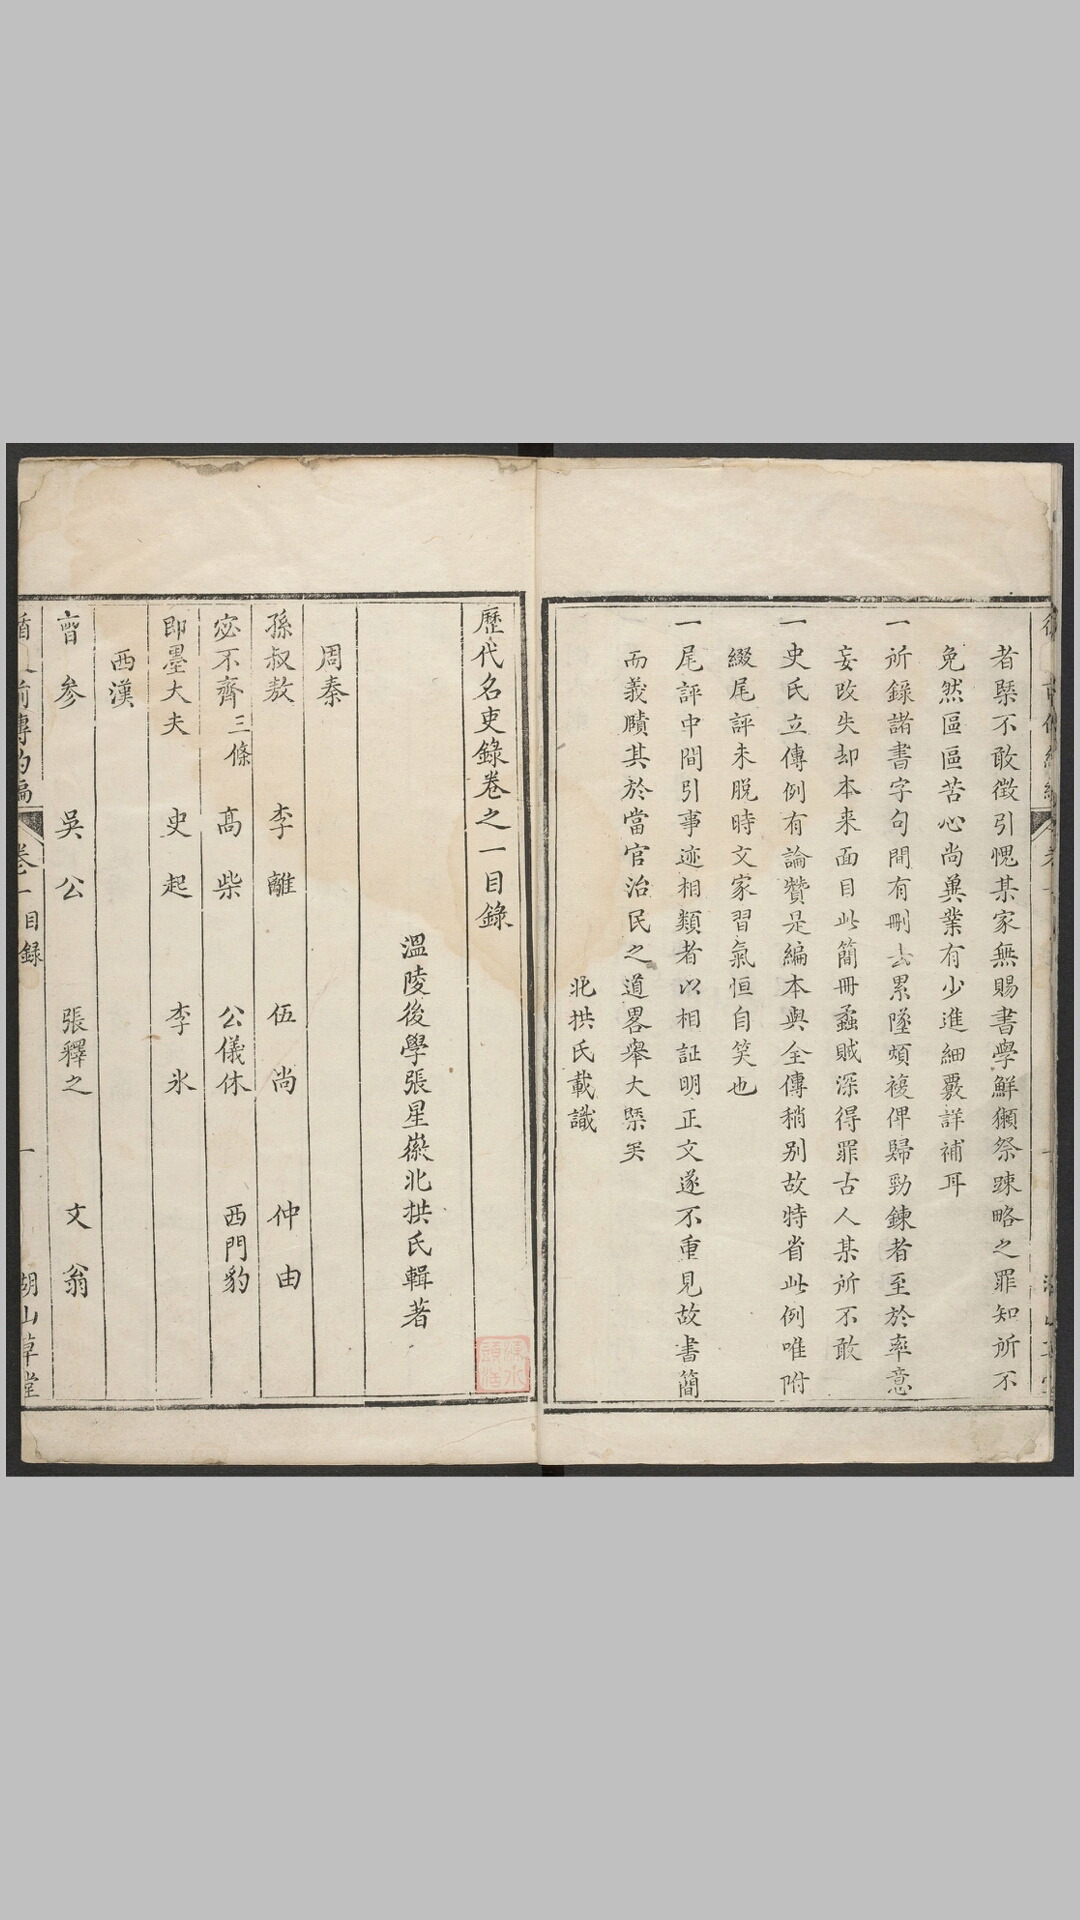 者槩不敢徵引愧某家無賜書學鮮獺祭踈略之罪知所不
免然區區苦心尚兾業有少進細覈詳補耳
一所錄諸書字句間有刪去累墜煩複俾歸勁鍊者至於率意
妄改失却本来面目此簡冊蟊賊深得罪古人某所不敢
一史氏立傳例有論贊是編本與全傳稍别故特省此例唯附
綴尾評未脱時文家習氣恒自笑也
一尾評中間引事迹相類者以相証明正文遂不重見故書簡
而義賾其於當官治民之道畧舉大槩矣
北拱氏載識
歷代名吏錄卷之一目錄
温陵後學張星徽北拱氏輯著
周秦
孫叔敖 李離 伍尚 仲由
宓不齊三條 高柴 公儀休 西門豹
即墨大夫 史起 李氷
西漢
曺参 吳公 張釋之 文翁
傳約編 卷一目録 一 湖山草堂